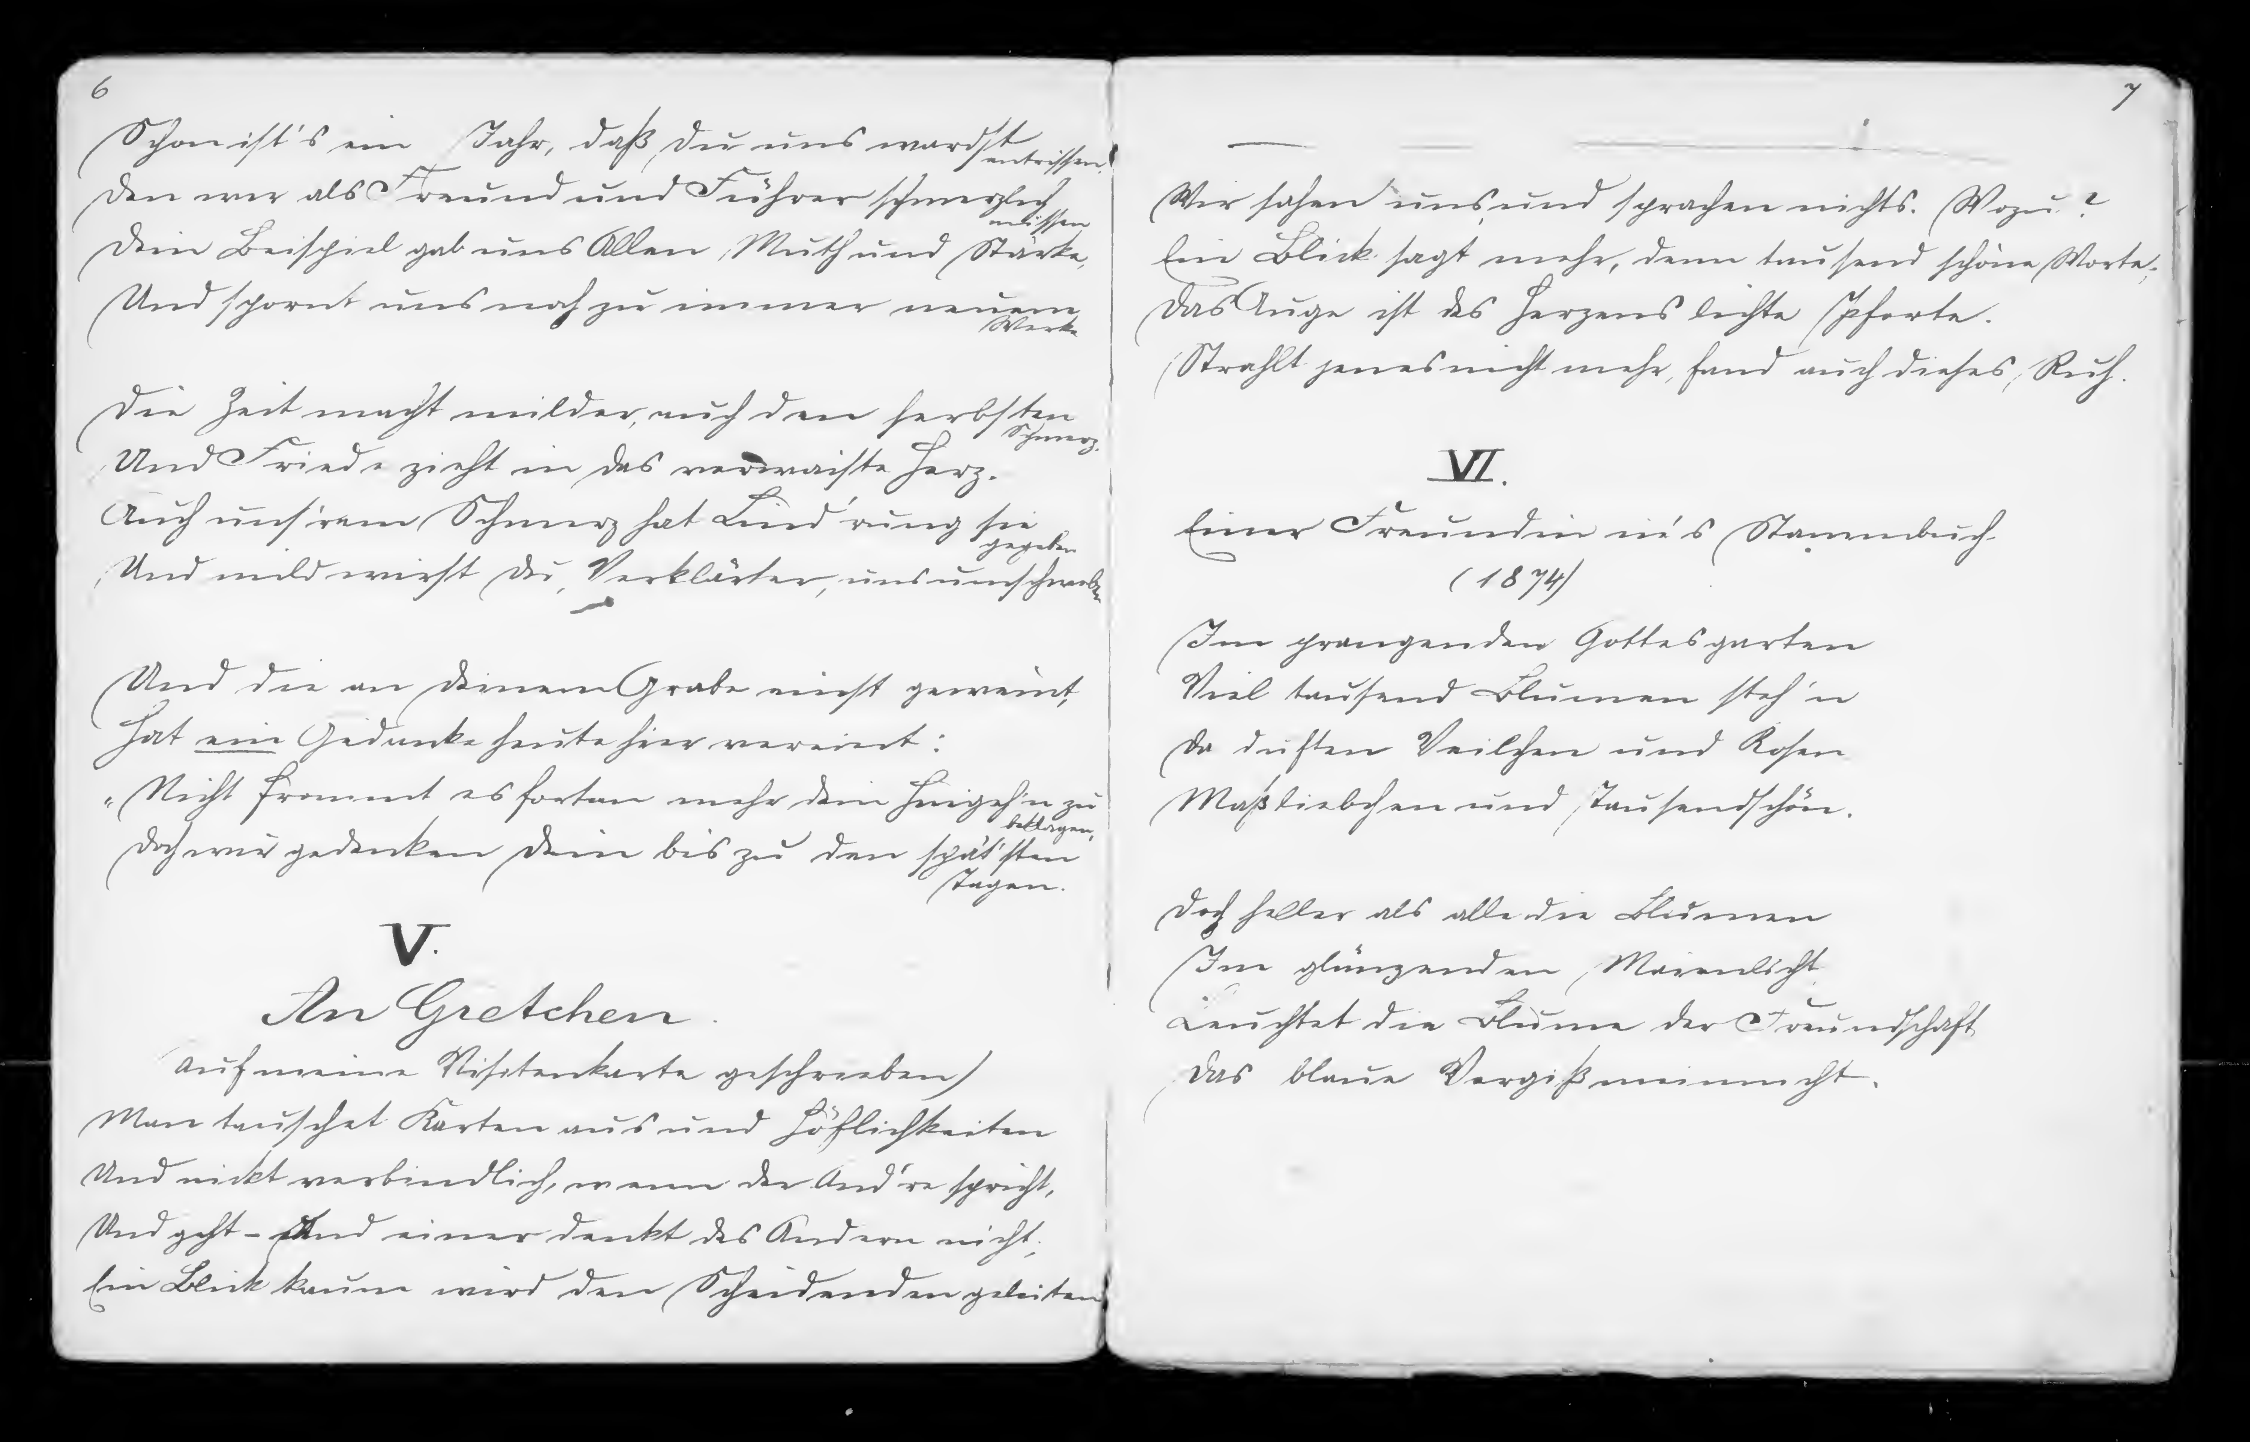 6
Schon ist's ein Jahr, daß Du uns wardst
entrissen,
Den wir als Freund und Führer schmerzlich
missen
Dein Beispiel gab uns Allen Muth und Stärke,
Und spornt uns noch zu immer neuem
Werke
Die Zeit macht milder, auch den herbsten
Schmerz.
Und Friede zieht in das verwaiste Herz.
Auch uns'rem Schmerz hat Lind'rung sie
gegeben
Und mild wirst Du, Verklärter, uns umschweben
Und die an Deinem Grabe einst geweint,
Hat ein Gedanke heute hier vereint:
"Nicht frommt es fortan mehr dein Hingeh'n zu
beklagen,
Doch wir gedenken Dein bis zu den spät'sten
Tagen.
V.
An Gretchen.
Auf meine Visitenkarte geschrieben)
Man tauschet Karten aus und Höflichkeiten
Und nickt verbindlich, wenn der And're spricht,
Und geht - Und einer denkt des Andern nicht;
Ein Blick kaum wird den Scheidenden geleiten
7
Wir sahen uns und sprachen nichts. Wozu?
Ein Blick sagt mehr, denn tausend schöne Worte;
Das Auge ist des Herzens lichte Pforte.
Strahlt jenes nicht mehr, fand auch dieses Ruh.
VI.
Einer Freundin in's Stammbuch
(1874)
Im prangenden Gottesgarten
Viel tausend Blumen steh'n
Da duften Veilchen und Rosen
Maßliebchen und Tausendschön.
Doch heller als alle die Blumen
Im glänzenden Maienlicht
Leuchtet die Blume der Freundschaft
Das blaue Vergißmeinnicht.